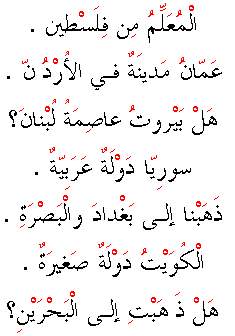 الْمُعَلِّمُ مِن فِلَسْطين .
عَمّانُ مَدينَةٌ في الأُرْدُنّ .
هَلْ بَيْروتُ عاصِمَةُ لُبْنانَ؟
سورِيّا دَوْلَةٌ عَرَبِيَّةٌ .
ذَهَبْنا إلى بَغْدادَ والْبَصْرَةِ .
الْكُوَيْتُ دَوْلَةٌ صَغيرَةٌ .
هَلْ ذَهَبْتِ إلى الْبَحْرَيْنِ؟